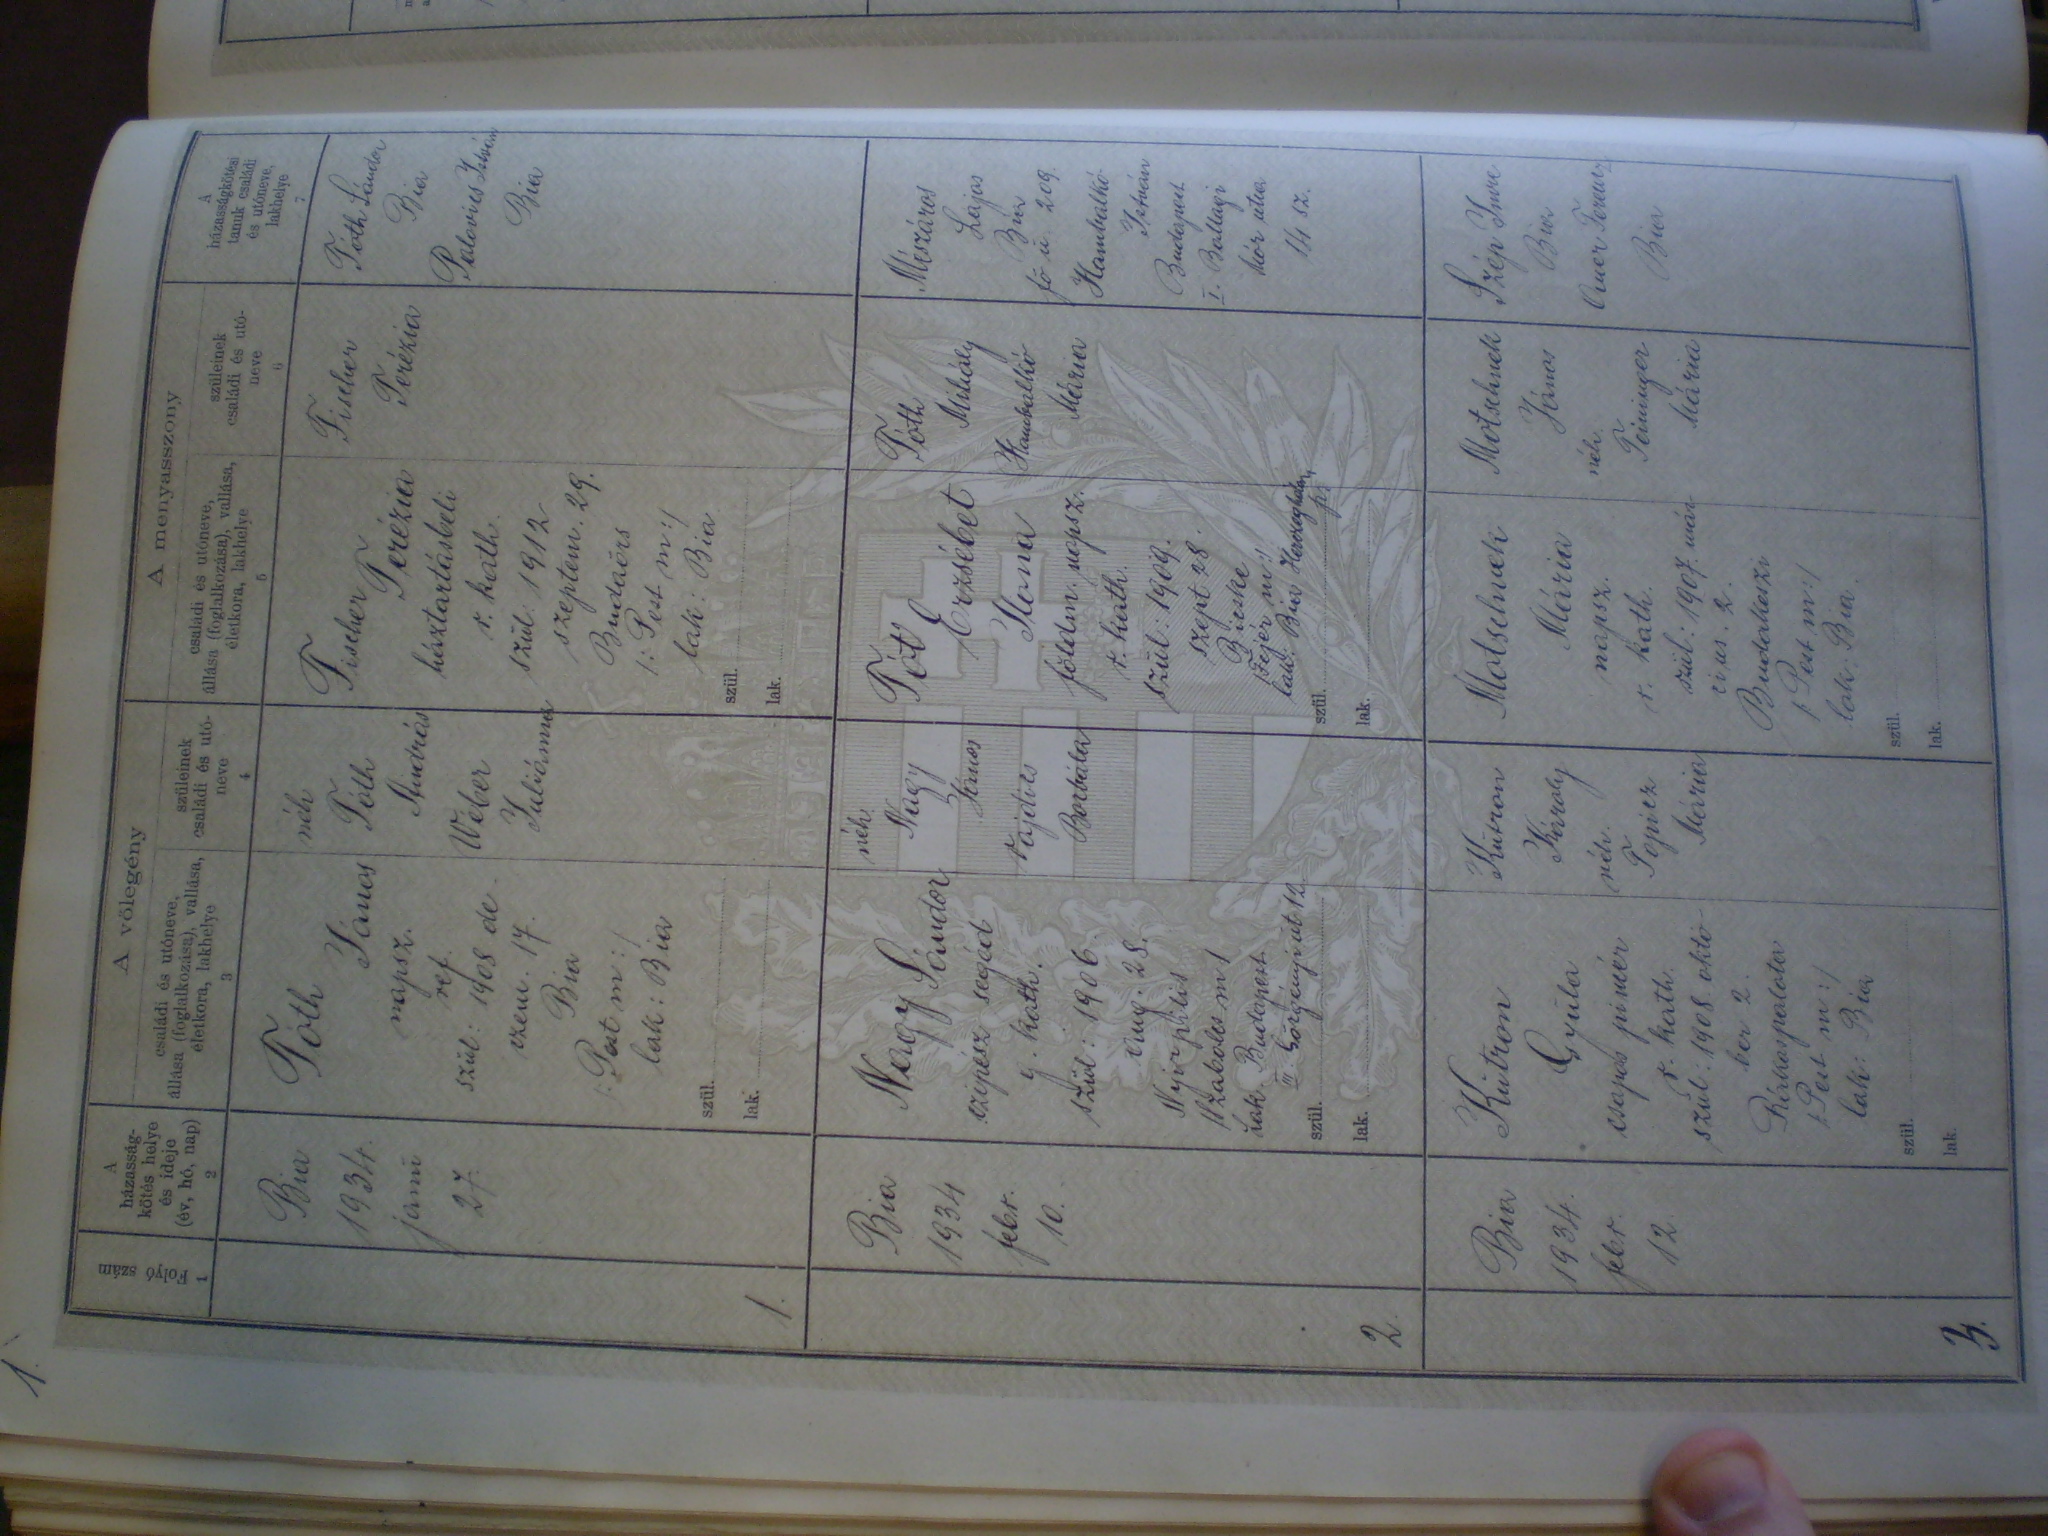 1.
A vőlegény
A menyasszony
Folyó
szám
A
házasság-
kötés helye
és ideje
(év, hó, nap)
családi és utóneve,
állása (foglalkozása), vallása,
életkora, lakhelye
szüleinek
családi és utó-
neve
családi és utóneve,
állása (foglalkozása), vallása,
életkora, lakhelye
szüleinek
családi és utó-
neve
A
házasságkötési
tanuk családi
és utóneve,
lakhelye
1
2
3
4
5
6
7
1.
Bia
1934.
janu
27.
Tóth
János
napsz.
ref.
szül: 1908 de-
czem. 17.
Bia
/: Pest m :/
lak: Bia
szül.
lak.
néh
Tóth
András
Weber
Juliánna
Fischer
Terézia
háztartásbeli
r. kath.
szül: 1912
szeptem. 29.
Budaörs
/: Pest m :/
lak: Bia
szül.
lak.
Fischer
Terézia
Tóth Sándor
Bia
István
Bia
2.
Bia
1934
febr.
10.
Nagy Sándor
czipész segéd
g. kath.
szül: 1906.
aug. 28.
/Szabolcs m/
Lak. Budapest.
út 12.
szül.
lak.
néh.
Nagy
János
Vajdics
Borbála
Tóth
Erzsébet
Ilona
földm. napsz.
r. kath.
szül: 1909.
szept 28.
Bicske
/Fejér m:/
lak: Bia Herczeghalom
p.
szül.
lak.
Tóth
Mihály
Hambalkó
Mária
Mészáros
Lajos
Bia
fő u 209.
Hambalkó
István
Budapest
I. Ballagi
Mór utca
14 sz.
3.
Bia
1934.
febr.
12
Kutron
Gyula
csapos pinczér
r. kath.
szül: 1908. októ-
ber 2.
Rákospalota
/: Pest m :/
lak: Bia
szül.
lak.
Kutron
Károly
néh.
Mária
Motschnek
Mária
napsz.
r. kath.
szül: 1907. már-
cius. 2.
Budakeszi
/: Pest m :/
lak: Bia.
szül.
lak.
Motschnek
János
néh.
Teininger
Mária
Szép Imre
Bia
Auer Ferencz
Bia